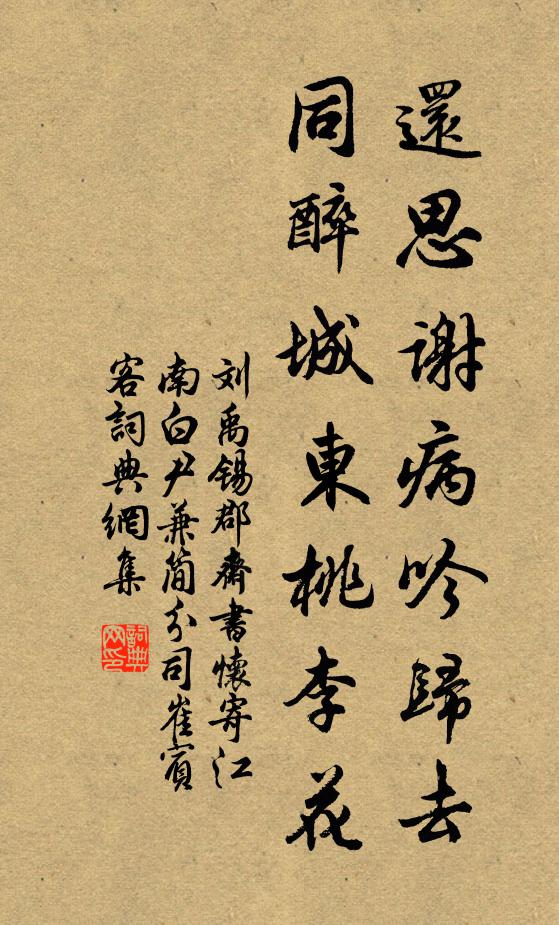 還思謝病吟歸去
同醉城東桃李花
刘禹锡郡齋書懷寄江
南白尹兼簡分司崔賓
客詞典網集
詞典
网印